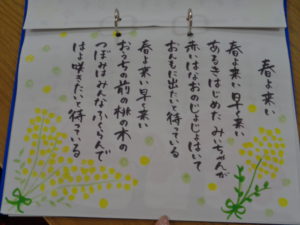 春よ来い
春よ来い早く来い
あるきはじめたみいちゃんが
赤いはなおのじょじょはいて
おんもに出たいと待っている
春よ来い早く来い
おうちの前の桃の木の
つぼみはみんなふくらんで
はよ咲きたいと待っている